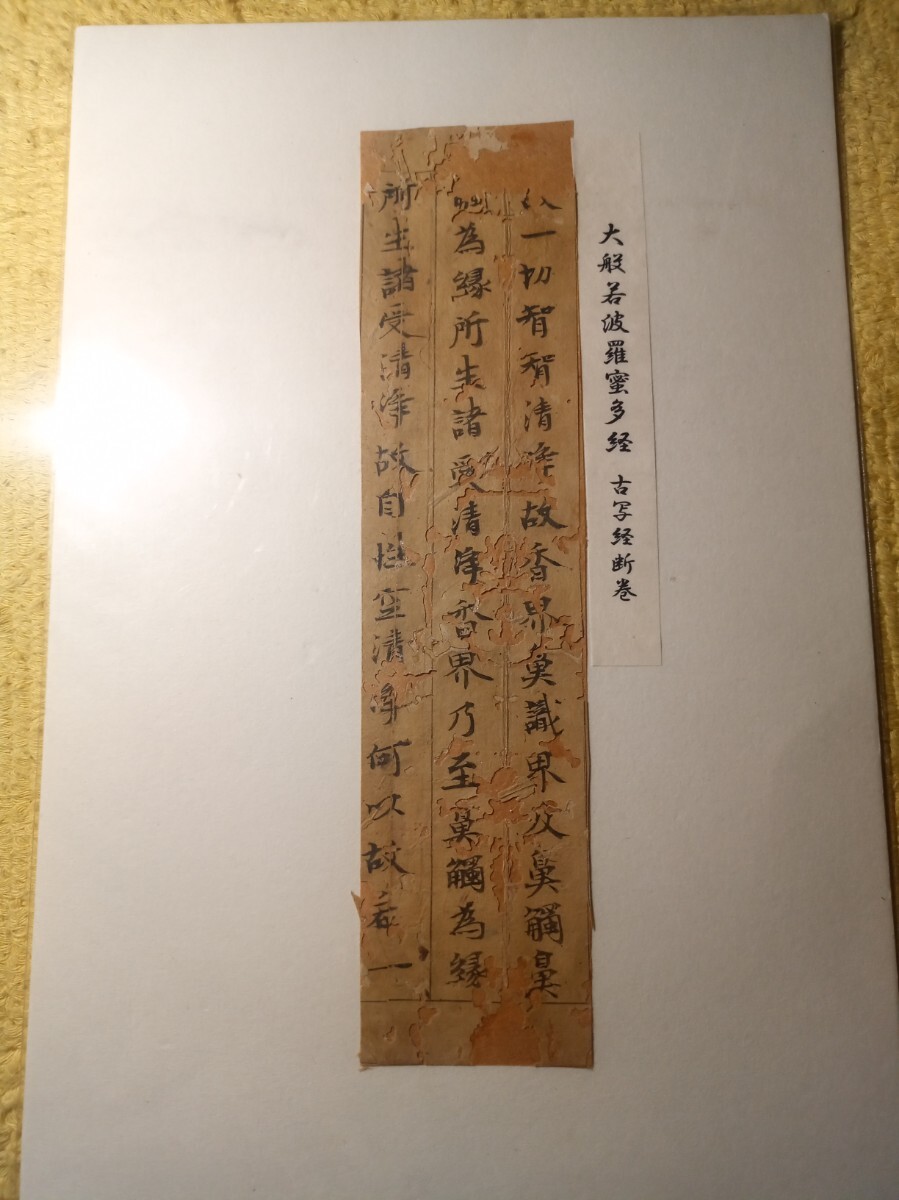 大般若波羅蜜多経 古写経断巻
一切智智清淨故香界鼻識界及鼻觸鼻
觸為縁所生諸受清淨香界乃至鼻觸為縁
所生諸受清淨故自性空清淨何以故若一